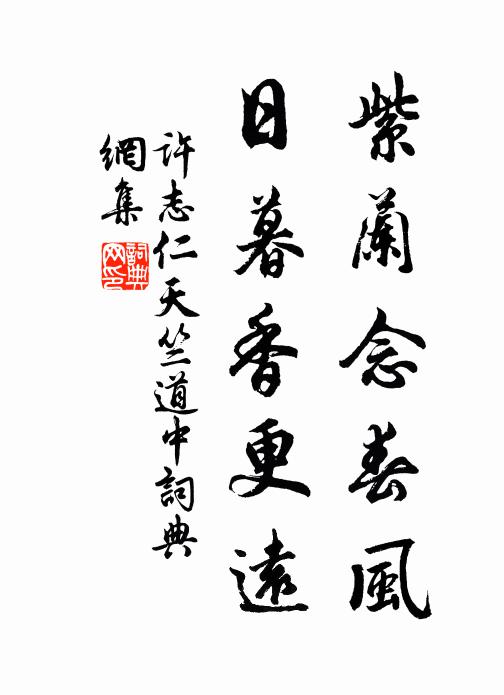 紫蘭念春風
日暮香更遠
許志仁天竺道中詞典
網集
詞典
网印